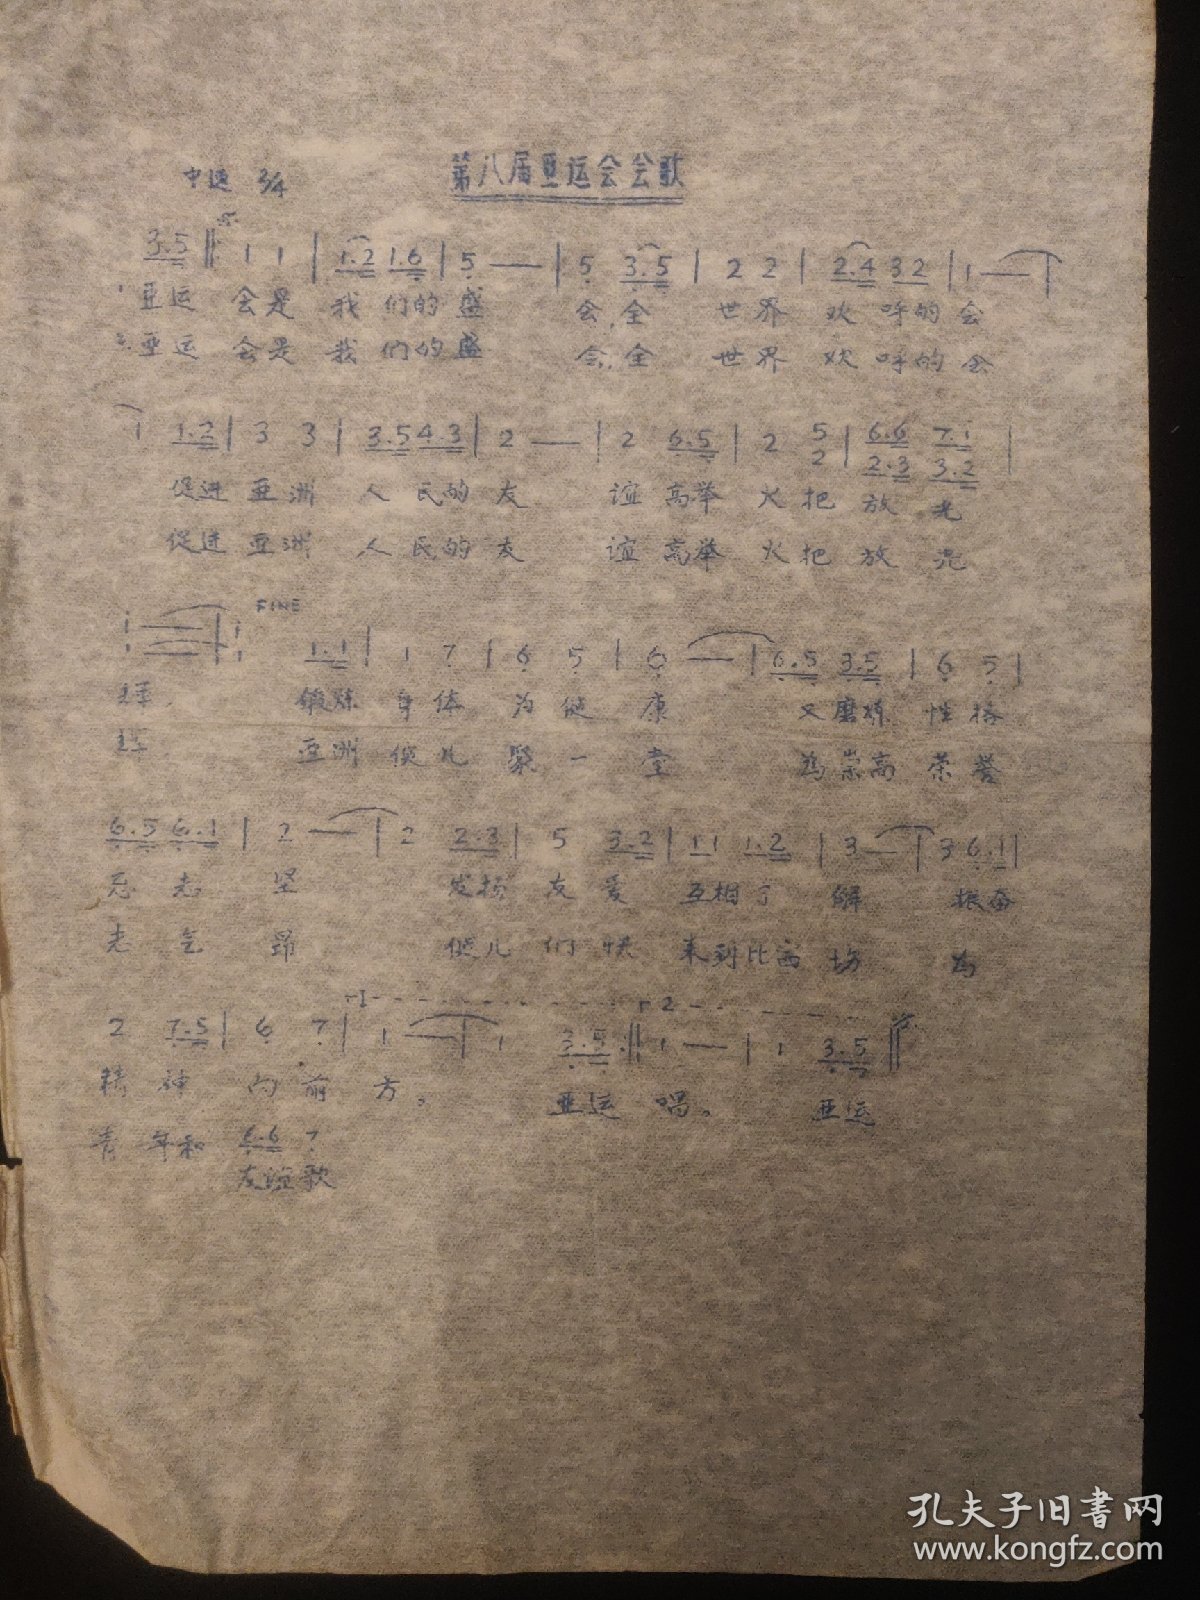 第八届亚运会会歌
中速 2/4
3.5 || 1 1 | 1.2 1.6 | 5 — | 5 3.5 | 2 2 | 2.4 32 | 1 — |
1. 亚运 会是 我 们的 盛 会,全 世界 欢 呼的 会
2. 亚运 会是 我 们的 盛 会,全 世界 欢 呼的 会
1 1.2 | 3 3 | 3.5 4.3 | 2 — | 2 6.5 | 2 5 | 6.6 7.1 |
2 2.3 3.2
促进 亚洲 人 民的 友 谊 高举 火把 放 光
促进 亚洲 人 民的 友 谊 高举 火把 放 光
1 — | 1 FINE 1.1 | 1 7 | 6 5 | 6 — | 6.5 3.5 | 6 5 |
1 — 1
辉. 锻炼 身体 为健 康 又磨炼 性格
辉. 亚洲 健儿 聚一 堂 为崇高 荣誉
6.5 6.1 | 2 — | 2 2.3 | 5 3.2 | 11 1.2 | 3 — | 3 6.1 |
忍 志 坚 发扬 友爱 互相了 解 振奋
志 气 昂 健儿 们快 来到比赛 场 为
2 7.5 | 6 7 | 1 — | 1 3.5 :|| 1 — | 1 3.5 ||
1 2
精 神 向前 方。 亚运 唱。 亚运
青 年和 6.6 7
友谊歌
孔夫子旧书网
www.kongfz.com